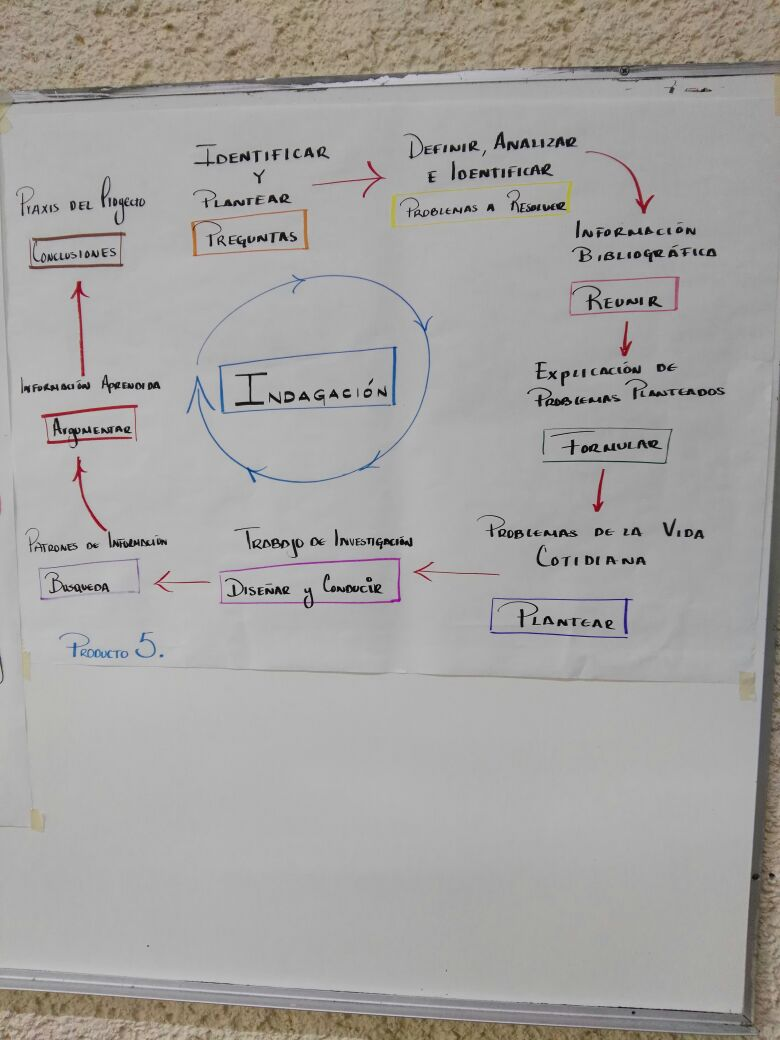 IDENTIFICAR
Y
PLANTEAR
PREGUNTAS
DEFINIR, ANALIZAR
E IDENTIFICAR
PROBLEMAS A RESOLVER
INFORMACIÓN
BIBLIOGRÁFICA
REUNIR
EXPLICACIÓN DE
PROBLEMAS PLANTEADOS
FORMULAR
PROBLEMAS DE LA VIDA
COTIDIANA
PLANTEAR
TRABAJO DE INVESTIGACIÓN
DISEÑAR y CONDUCIR
PATRONES DE INFORMACIÓN
BUSQUEDA
INFORMACIÓN APRENDIDA
ARGUMENTAR
PRAXIS DEL PROYECTO
CONCLUSIONES
INDAGACIÓN
PRODUCTO 5.